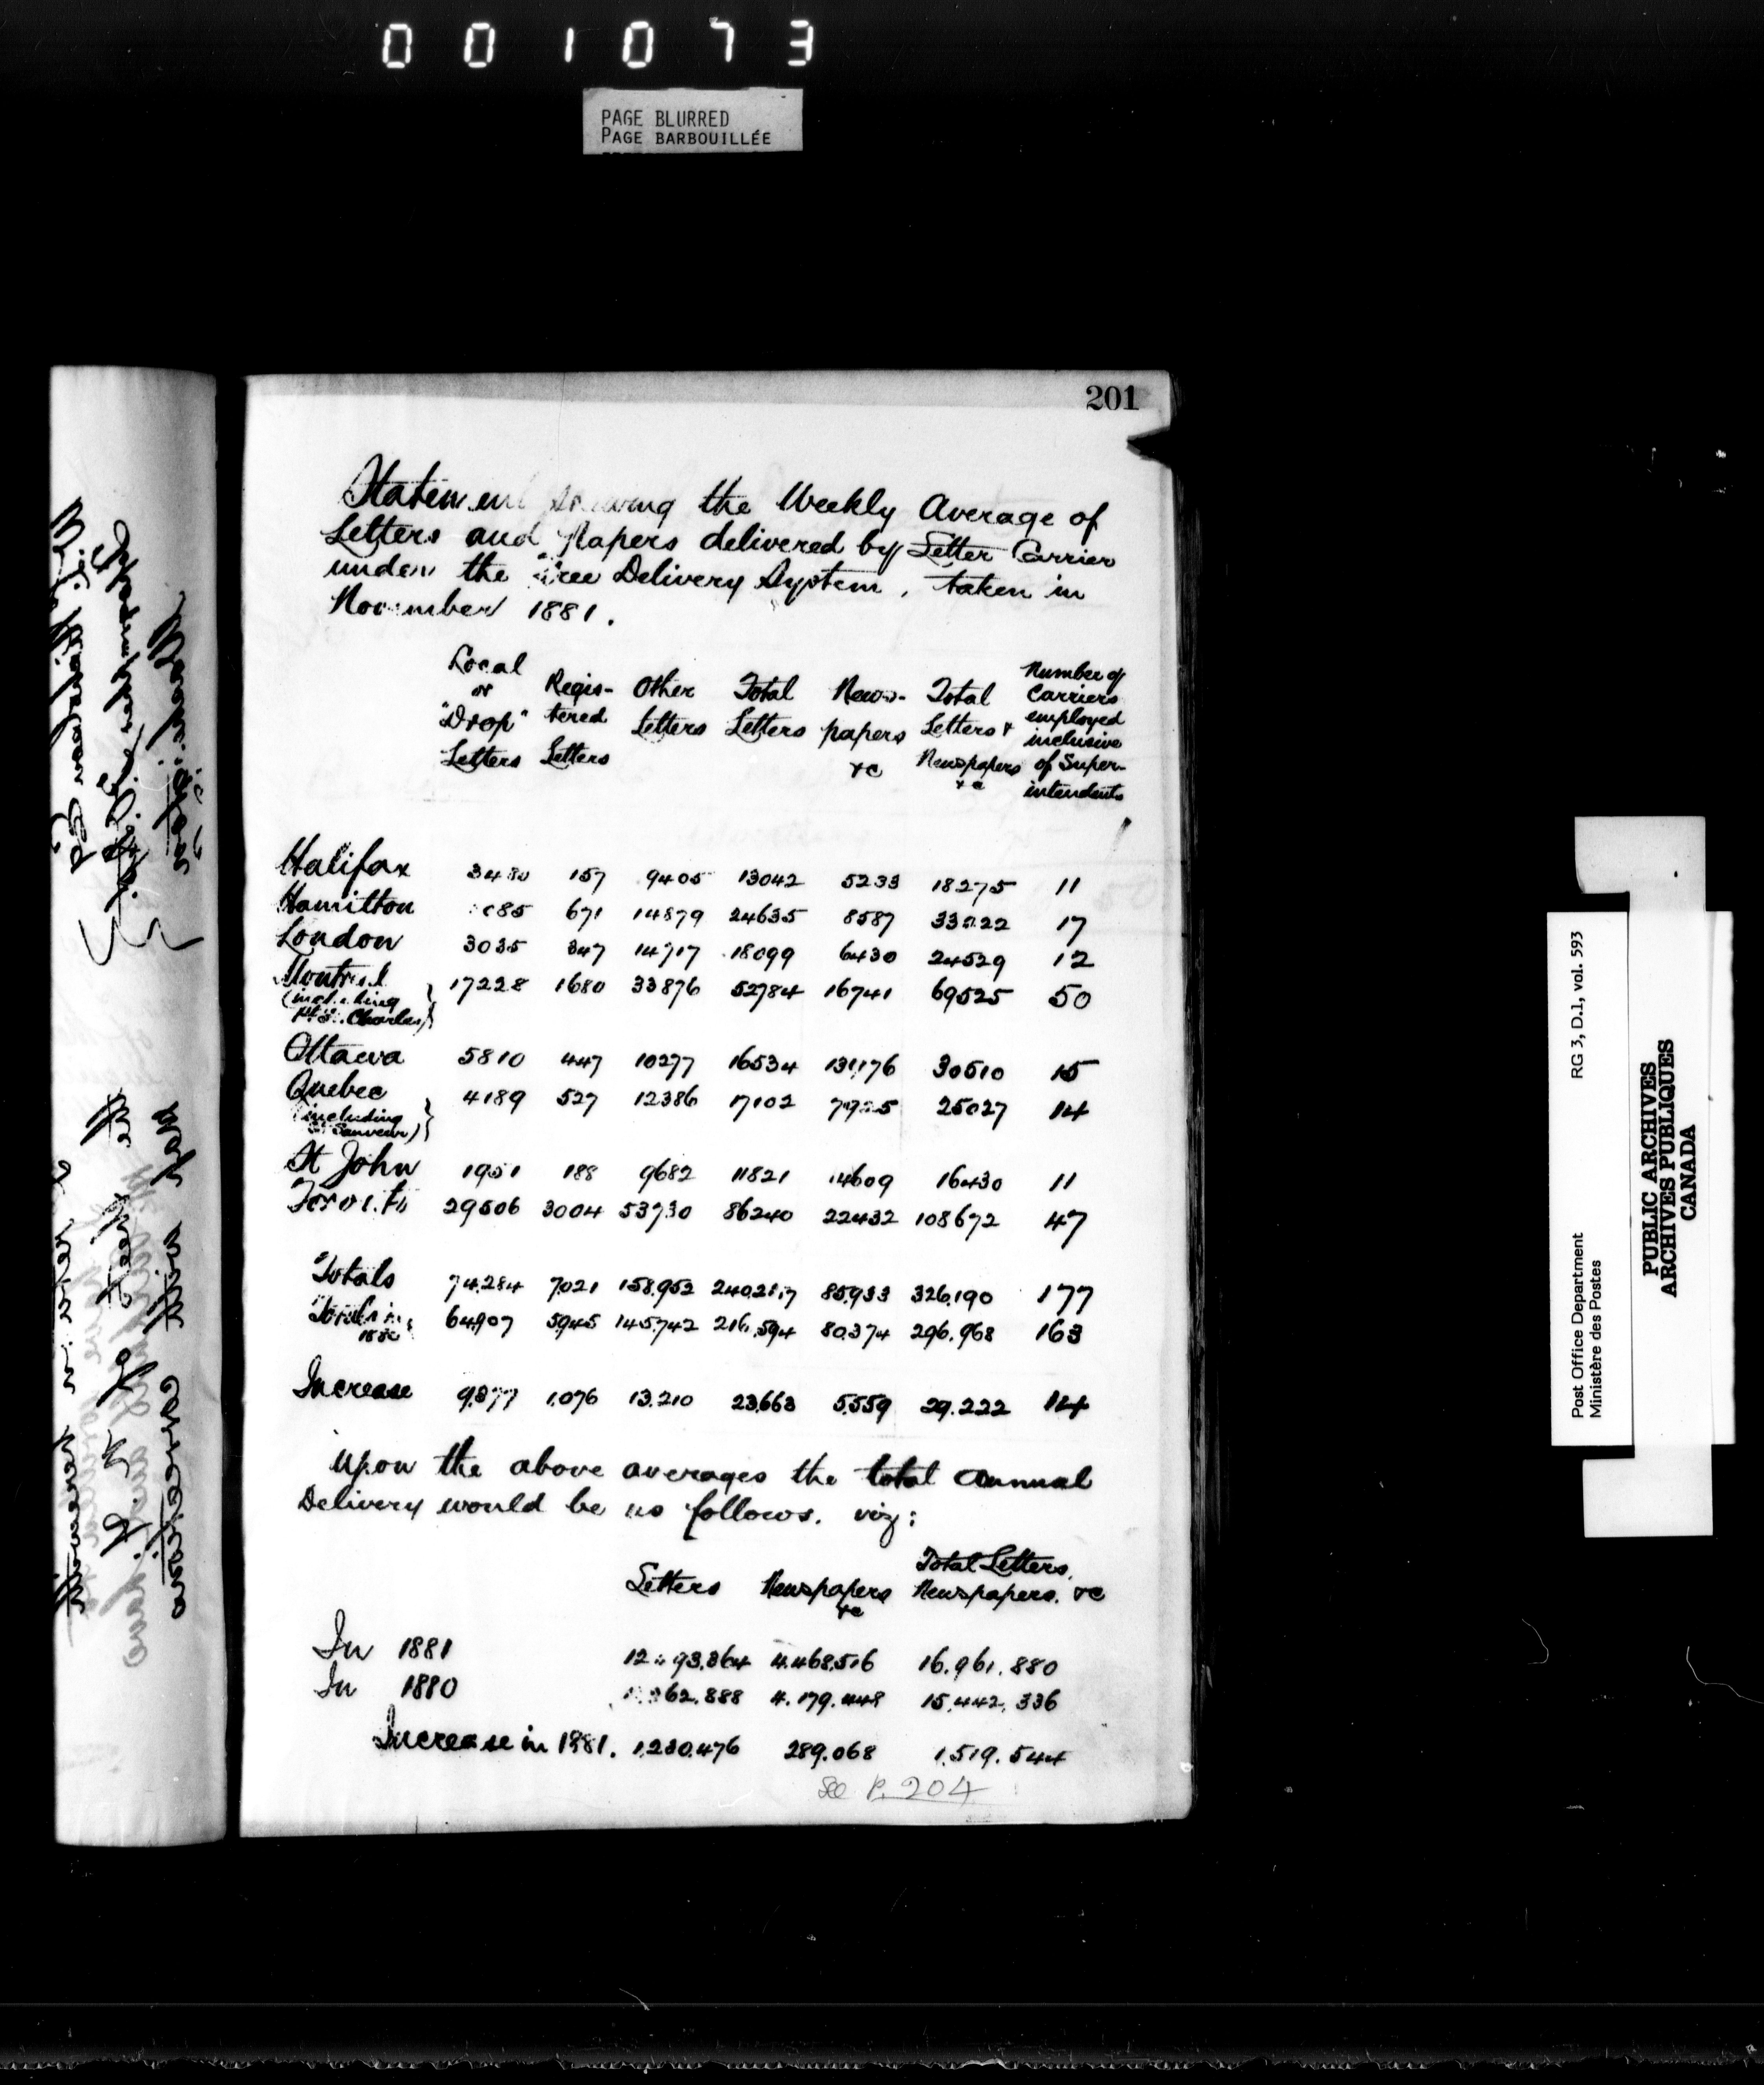 001073
PAGE BLURRED
PAGE BARBOUILLÉE
201
Statement showing the Weekly Average of
Letters and Papers delivered by Letter Carrier
under the Free Delivery System, taken in
November 1881.
Local or "Drop" Letters
Regis-tered Letters
Other Letters
Total Letters
News-papers &c
Total Letters & Newspapers &c
Number of Carriers employed inclusive of Super-intendents
Halifax 3480 157 9405 13042 5233 18275 11
Hamilton 671 14879 24635 8587 33222 17
London 3035 347 14717 18099 6430 24529 12
Montreal 17228 1680 33876 52784 16741 69525 50
(including
Pt St. Charles)
Ottawa 5810 447 10277 16534 30510 15
Quebec 4189 527 12386 17102 7925 25027 14
(including
St Sauveur)
St John 1951 188 9682 11821 4609 16430 11
Toronto 29506 3004 53730 86240 22432 108672 47
Totals 74.284 7.021 158.952 85.933 326.190 177
Totals in 1880 64.907 5.945 145.742 216.594 80.374 296.968 163
Increase 9.377 1.076 13.210 23.663 5.559 29.222 14
Upon the above averages the total annual
Delivery would be as follows. viz:
Letters Newspapers &c Total Letters, Newspapers. &c
In 1881 4.468.516 16.961.880
In 1880 4.179.448 15.442.336
Increase in 1881. 1.230.476 289.068 1.519.544
See P. 204
Post Office Department
Ministère des Postes
RG 3, D.1, vol. 593
PUBLIC ARCHIVES
ARCHIVES PUBLIQUES
CANADA